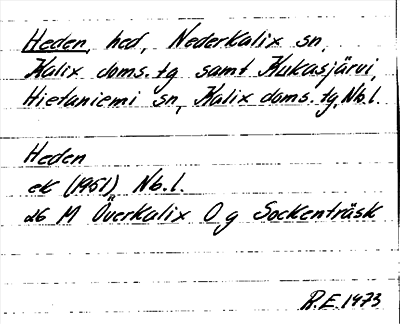 Heden, hed, Nederkalix sn,
Kalix doms. tg samt Kukasjärvi,
Hietaniemi sn, Kalix doms. tg, Nb.l.
Heden
ek (1951) Nb.l.
26 M Överkalix O g Sockenträsk
R.E. 1973